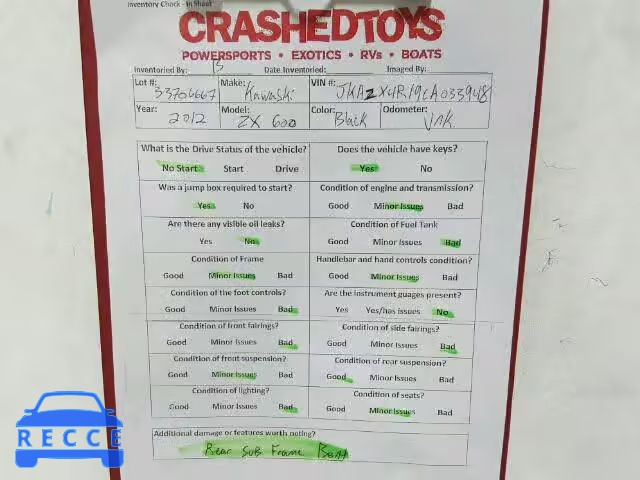 Inventory Check - In Sheet
CRASHEDTOYS
POWERSPORTS • EXOTICS • RVs • BOATS
Inventoried By: 15 Date Inventoried: Imaged By:
Lot #: 33706667 Make: Kawaski VIN #: JKAZX4R19CA033948
Year: 2012 Model: ZX 600 Color: Black Odometer: Unk.
What is the Drive Status of the vehicle? Does the vehicle have keys?
No Start Start Drive Yes No
Was a jump box required to start? Condition of engine and transmission?
Yes No Good Minor Issues Bad
Are there any visible oil leaks? Condition of Fuel Tank
Yes No Good Minor Issues Bad
Condition of Frame Handlebar and hand controls condition?
Good Minor Issues Bad Good Minor Issues Bad
Condition of the foot controls? Are the instrument guages present?
Good Minor Issues Bad Yes Yes/has issues No
Condition of front fairings? Condition of side fairings?
Good Minor Issues Bad Good Minor Issues Bad
Condition of front suspension? Condition of rear suspension?
Good Minor Issues Bad Good Minor Issues Bad
Condition of lighting? Condition of seats?
Good Minor Issues Bad Good Minor Issues Bad
Additional damage or features worth noting?
Rear Sub Frame Bent
RECCE